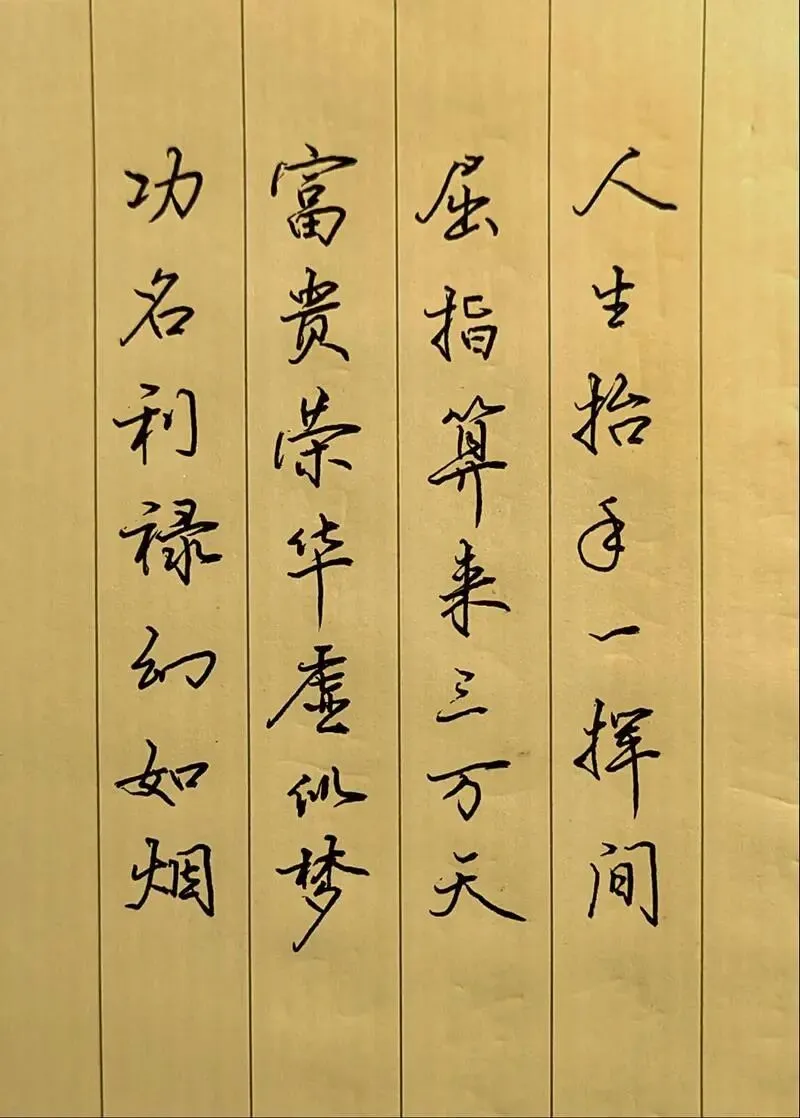 人生抬手一挥间
屈指算来三万天
富贵荣华虚似梦
功名利禄幻如烟